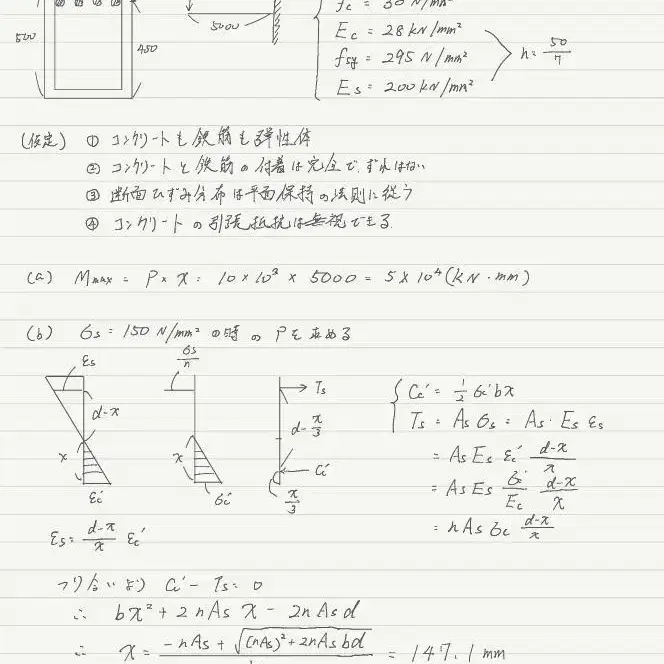 500
450
5000
f'c = 30 N/mm²
Ec = 28 kN/mm²
fsy = 295 N/mm²
Es = 200 kN/mm²
n = 50/7
(仮定) ① コンクリートも鉄筋も弾性体
② コンクリートと鉄筋の付着は完全で、ずれはない
③ 断面ひずみ分布は平面保持の法則に従う
④ コンクリートの引張抵抗は無視できる
(a) Mmax = P × x = 10×10³ × 5000 = 5×10⁴ (kN・mm)
(b) σs = 150 N/mm² の時のPを求める
εs
d-x
x
ε'c
σs/n
x
σ'c
Ts
d-x/3
C'c
x/3
C'c = 1/2 σ'c b x
Ts = As σs = As・Es εs
= As Es ε'c (d-x)/x
= As Es σ'c/Ec (d-x)/x
= n As σ'c (d-x)/x
εs = (d-x)/x ε'c
つり合いより C'c - Ts = 0
∴ bx² + 2nAs x - 2nAs d
∴ x = -nAs + √((nAs)² + 2nAs bd) = 147.1 mm